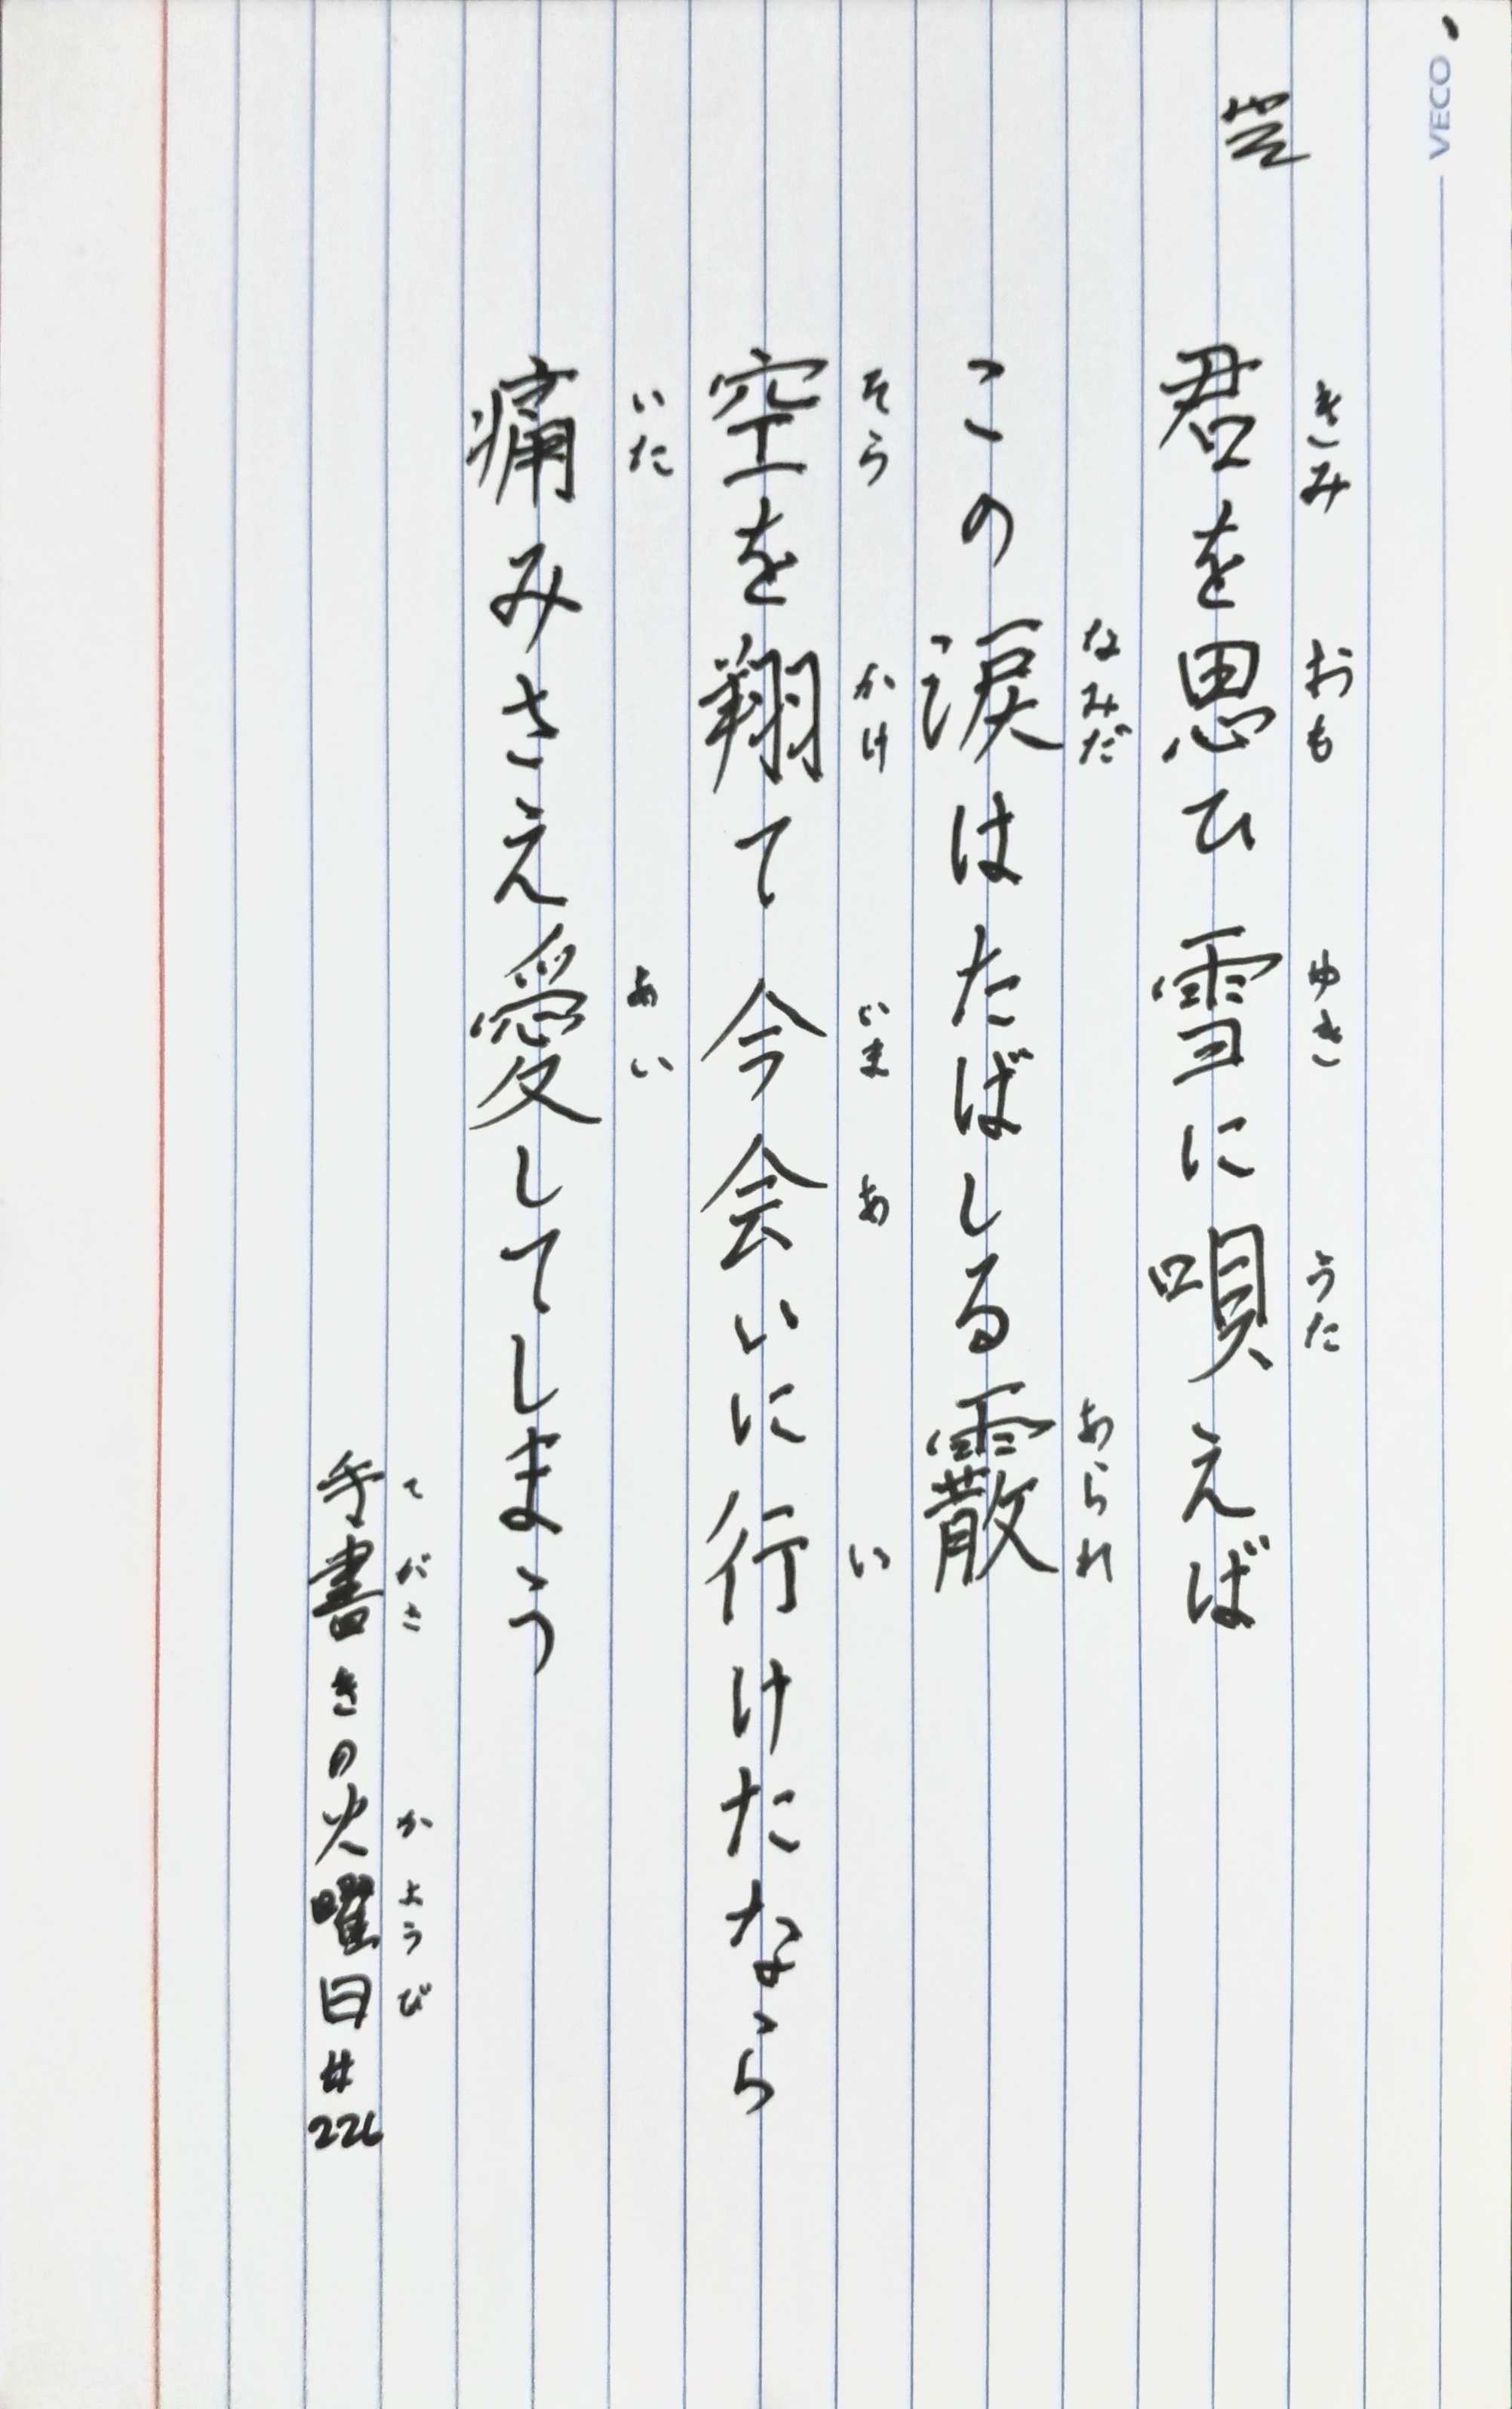 VECO
きみ おも ゆき うた
君を思ひ雪に唄えば
なみだ あられ
この涙はたばしる霰
そら かけ いま あ い
空を翔て今会いに行けたなら
いた あい
痛みさえ愛してしまう
て がき か ようび
手書きの火曜日#226